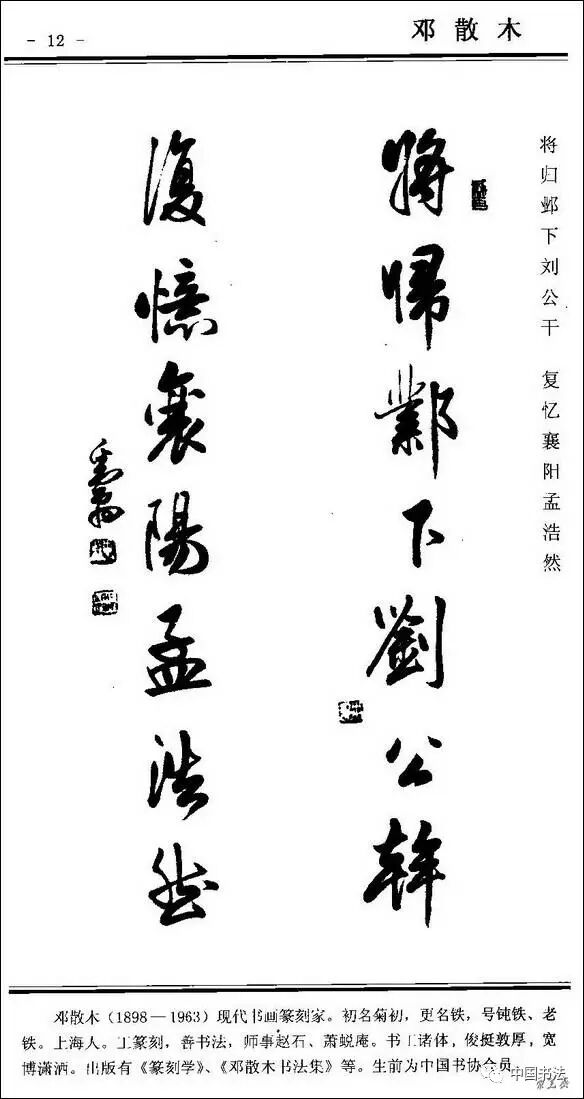 - 12 -
邓散木
将归邺下刘公干 复忆襄阳孟浩然
將歸鄴下劉公幹
復憶襄陽孟浩然
邓散木（1898—1963）现代书画篆刻家。初名菊初，更名铁，号钝铁、老
铁。上海人。工篆刻，善书法，师事赵石、萧蜕庵。书工诸体，俊挺敦厚，宽
博潇洒。出版有《篆刻学》、《邓散木书法集》等。生前为中国书协会员。
中国书法